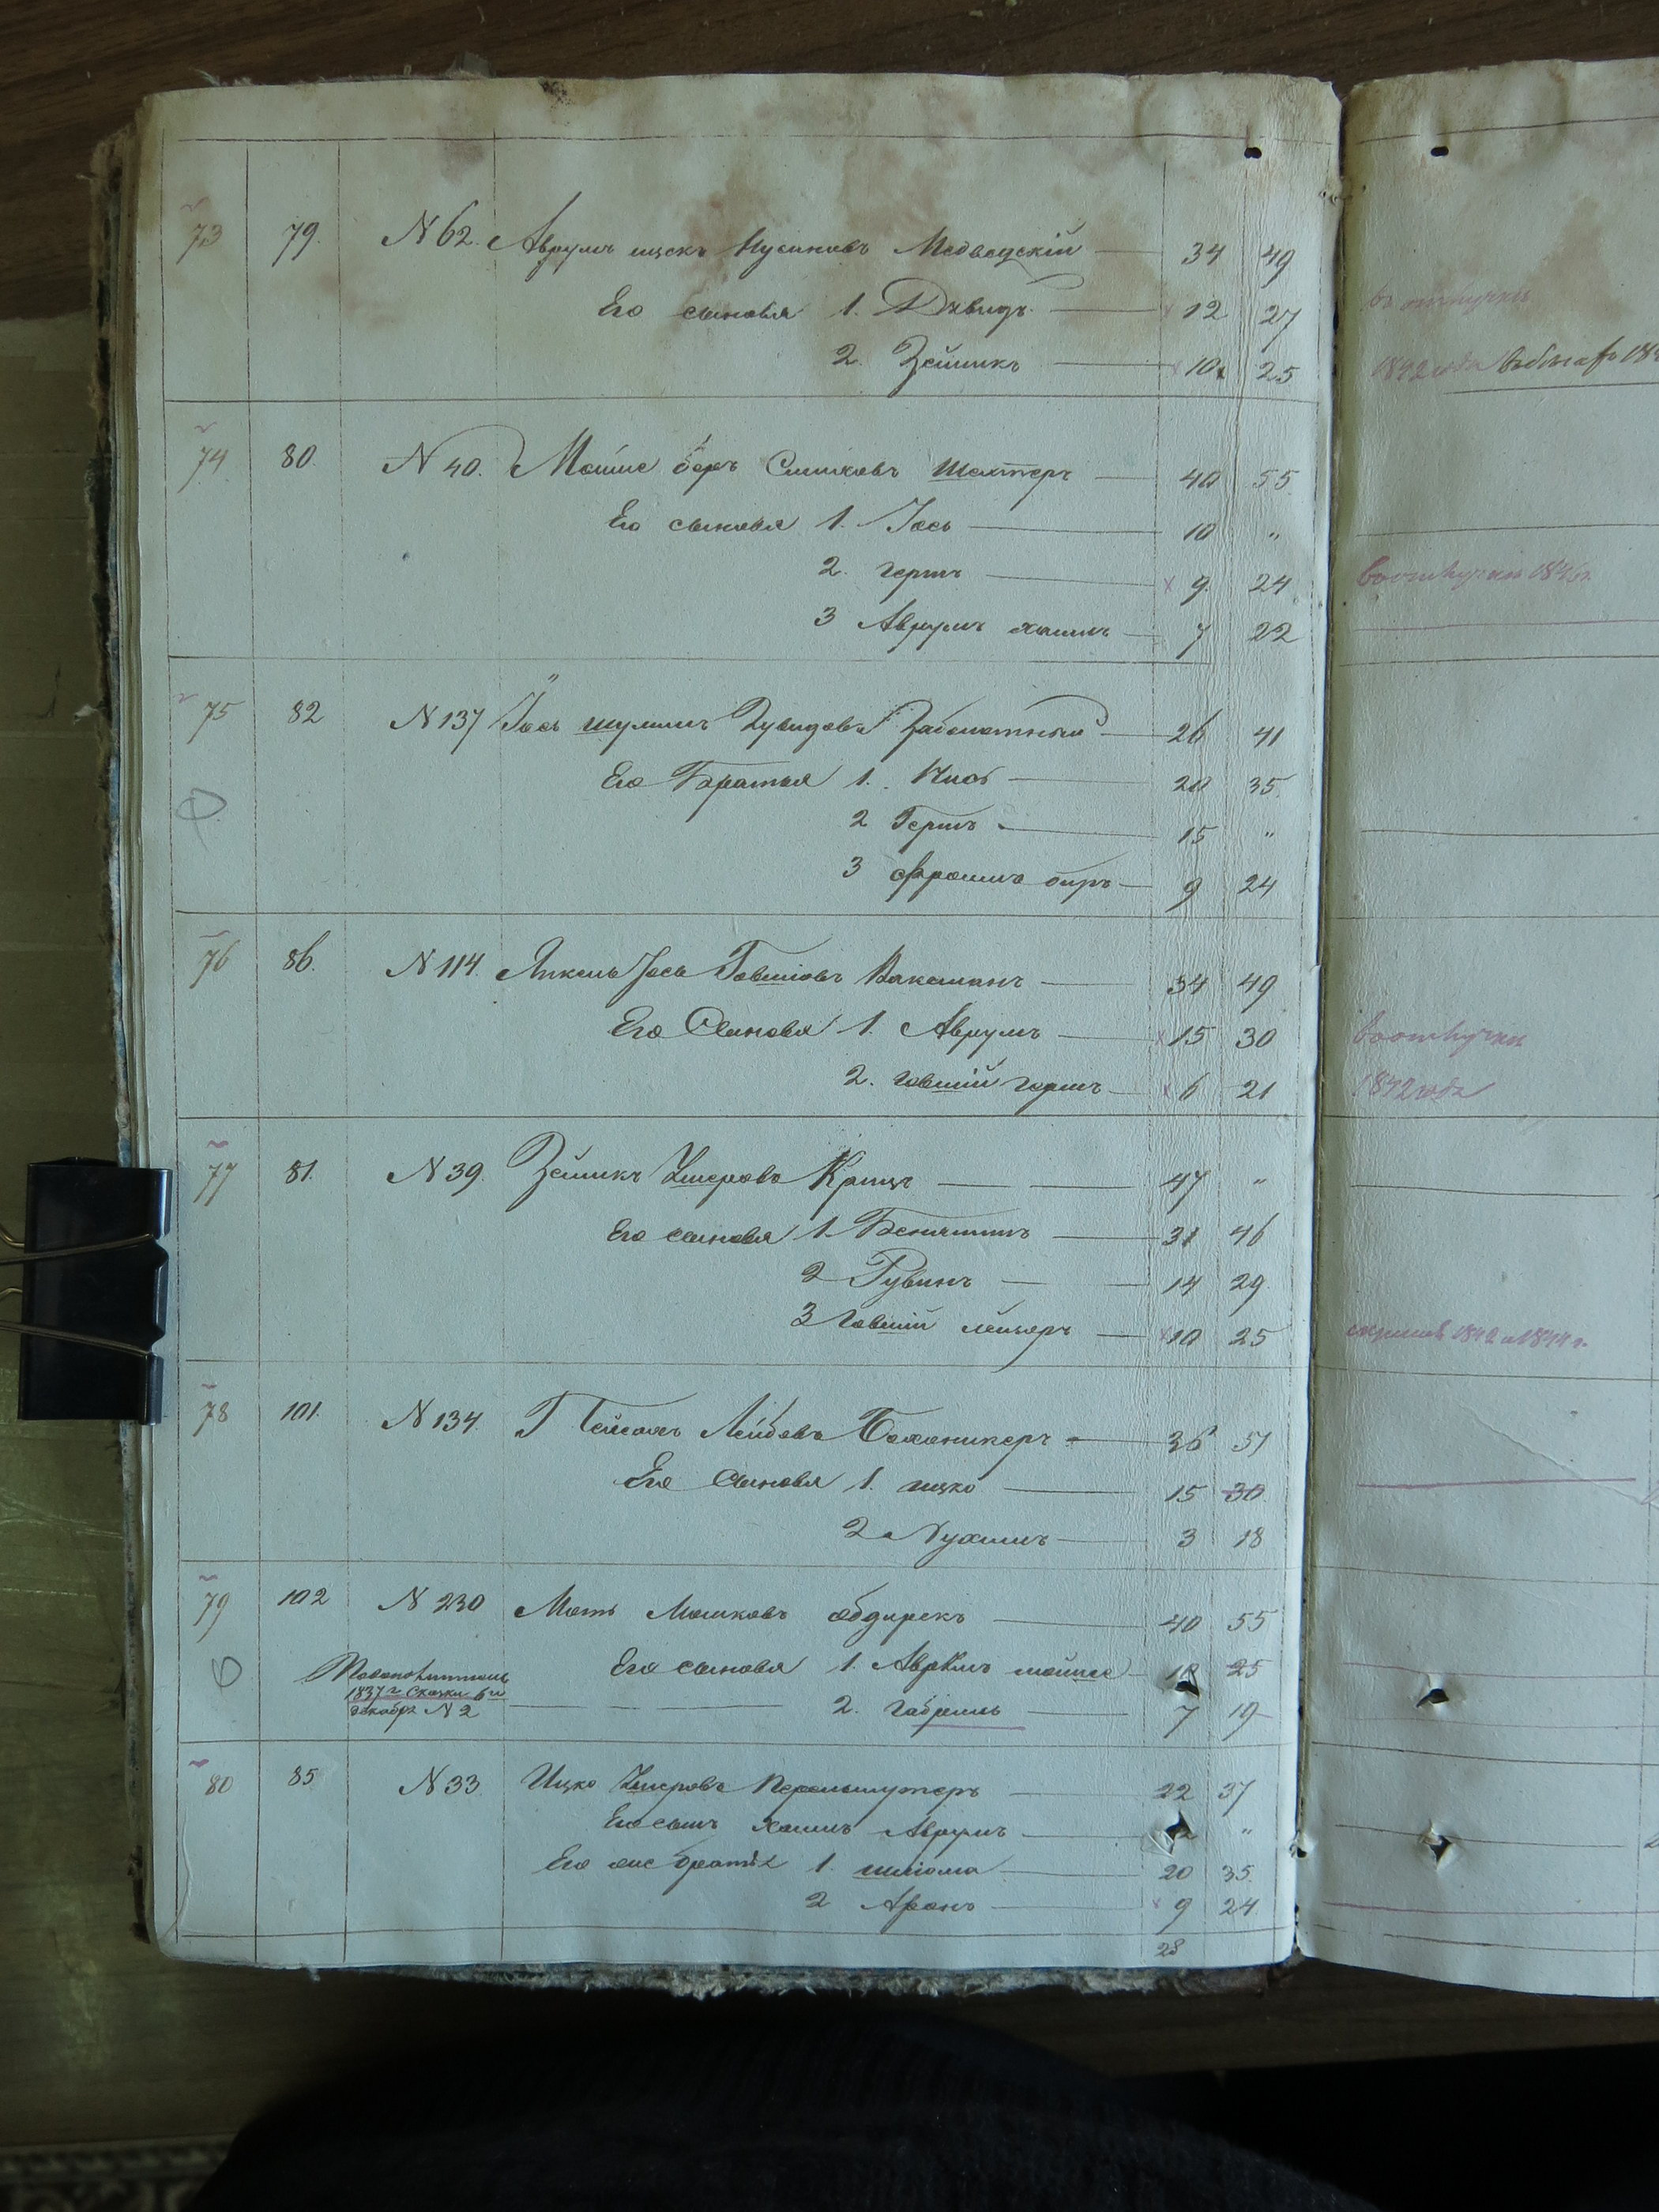 73 79. N 62. Аврумъ ицекъ Нусиновъ Медведскій — 34 49
Его сыновья 1. Давидъ — 12 27
2. Зейликъ — 10 25
74 80. N 40. Мойше беръ Симховъ Шехтеръ — 40 55
Его сыновья 1. Іось — 10 „
2. Гершъ — 9. 24
3 Аврумъ хаимъ — 7 22
75 82 N 137 Іось шулимъ Дувидовъ Заболотный — 26 41
Его Братья 1. — 20 35.
2 Гершъ — 15 „
3 Фроимъ — 9 24
76 86. N 114. Янкель Іось Говшіовъ Ваксманъ — 34 49
Его Сыновья 1. Аврумъ — 15 30
2. Говшій гершъ — 6 21
77 81. N 39. Зейликъ Ушеровъ — 47 „
Его сыновья 1. Беніяминъ — 31 46
2 Рувинъ — 14 29.
3 Говшій лейзеръ — 10 25
78 101. N 134. Лейбовъ — 36 51
Его Сыновья 1. ицко — 15 30
2 Нухимъ — 3 18
79 102 N 230 Мошковъ — 40 55
Его сыновья 1. мойше — 25
1837 г. Сказки 6 го
декабря N 2 — 2. Габріель — 7 19
80 85 N 33 Ицко Ушеровъ Перельмутеръ — 22 37
Его сынъ хаимъ Аврумъ — „
Его же братья 1. шлiома — 20 35.
2 Аронъ — 9 24
28
1842 года
1846 г.
1842 года
1842 и 1844 г.